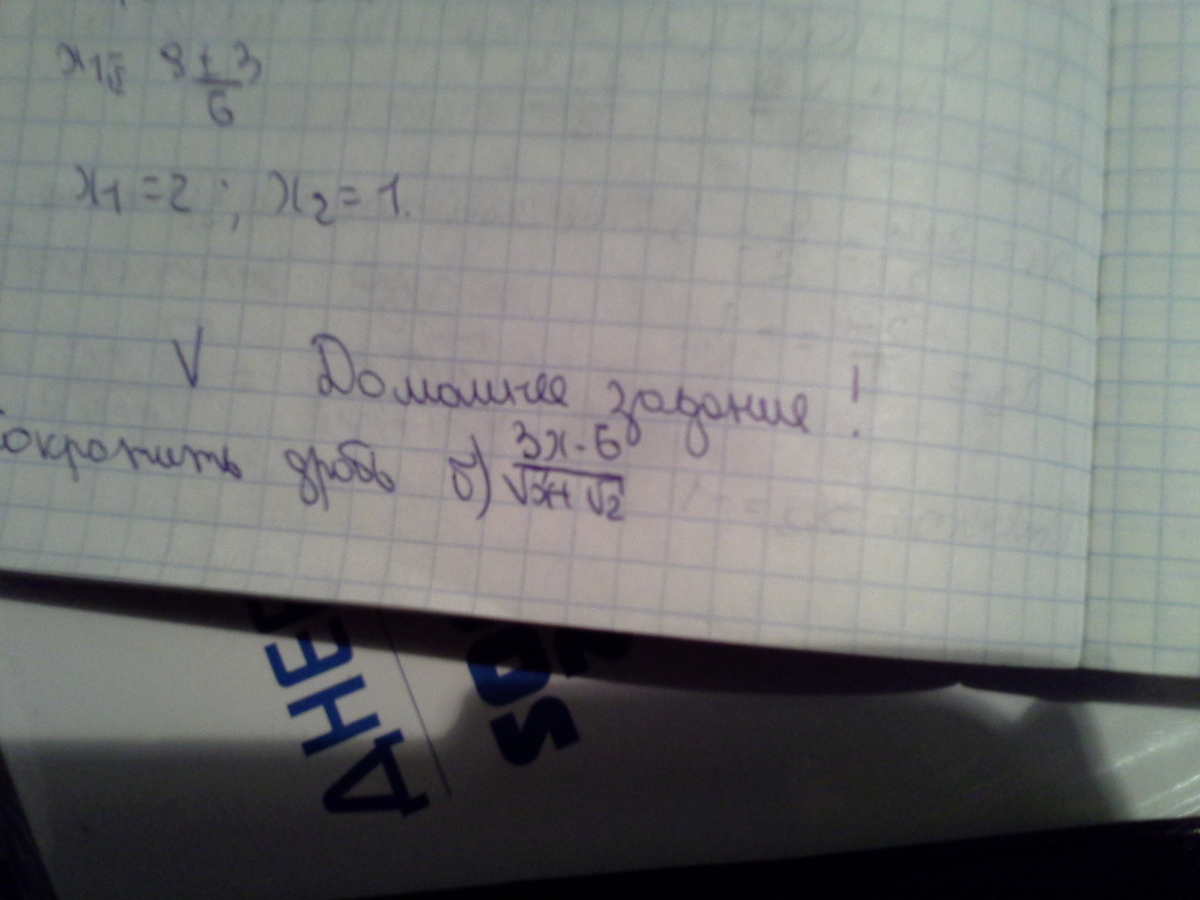 x₁,₂ = (8 ± 3)/6
x₁ = 2 ; x₂ = 1.
V Домашнее задание !
Сократить дробь б) (3x - 6)/(√x + √2)
ДНЕ